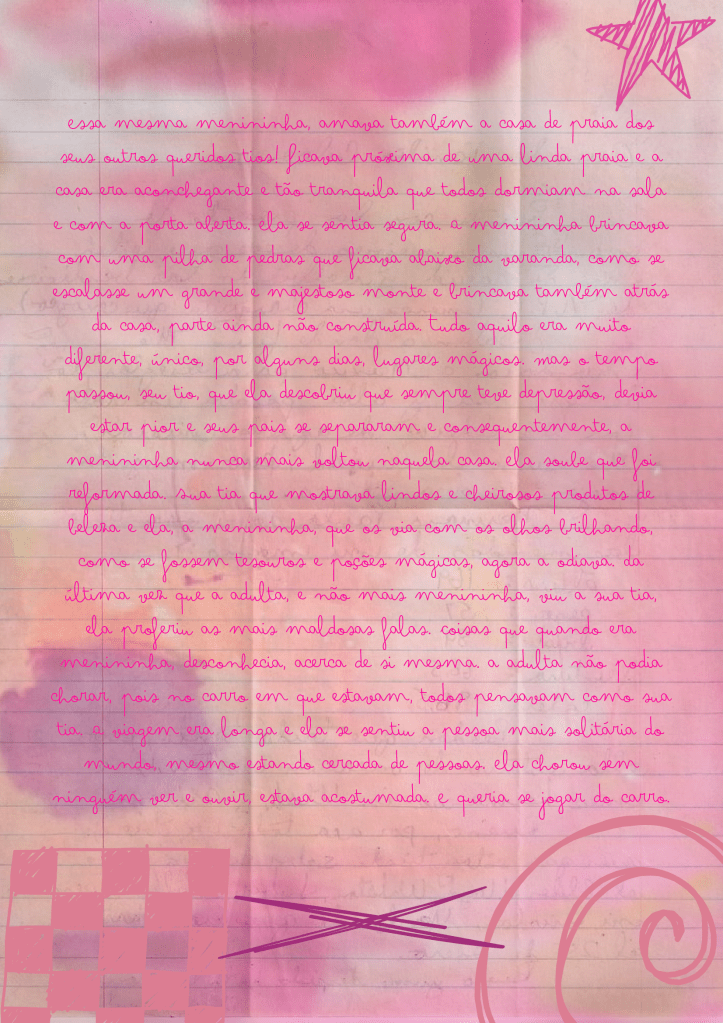 essa mesma menininha, amava também a casa de praia dos
seus outros queridos tios! ficava próxima de uma linda praia e a
casa era aconchegante e tão tranquila que todos dormiam na sala
e com a porta aberta. ela se sentia segura. a menininha brincava
com uma pilha de pedras que ficava abaixo da varanda, como se
escalasse um grande e majestoso monte e brincava também atrás
da casa, parte ainda não construída. tudo aquilo era muito
diferente, único, por alguns dias, lugares mágicos. mas o tempo
passou, seu tio, que ela descobriu que sempre teve depressão, devia
estar pior e seus pais se separaram e consequentemente, a
menininha nunca mais voltou naquela casa. ela soube que foi
reformada. sua tia que mostrava lindos e cheirosos produtos de
beleza e ela, a menininha, que os via com os olhos brilhando,
como se fossem tesouros e poções mágicas, agora a odiava. da
última vez que a adulta, e não mais menininha, viu a sua tia,
ela proferiu as mais maldosas falas. coisas que quando era
menininha, desconhecia, acerca de si mesma. a adulta não podia
chorar, pois no carro em que estavam, todos pensavam como sua
tia. a viagem era longa e ela se sentiu a pessoa mais solitária do
mundo, mesmo estando cercada de pessoas. ela chorou sem
ninguém ver e ouvir, estava acostumada. e queria se jogar do carro.